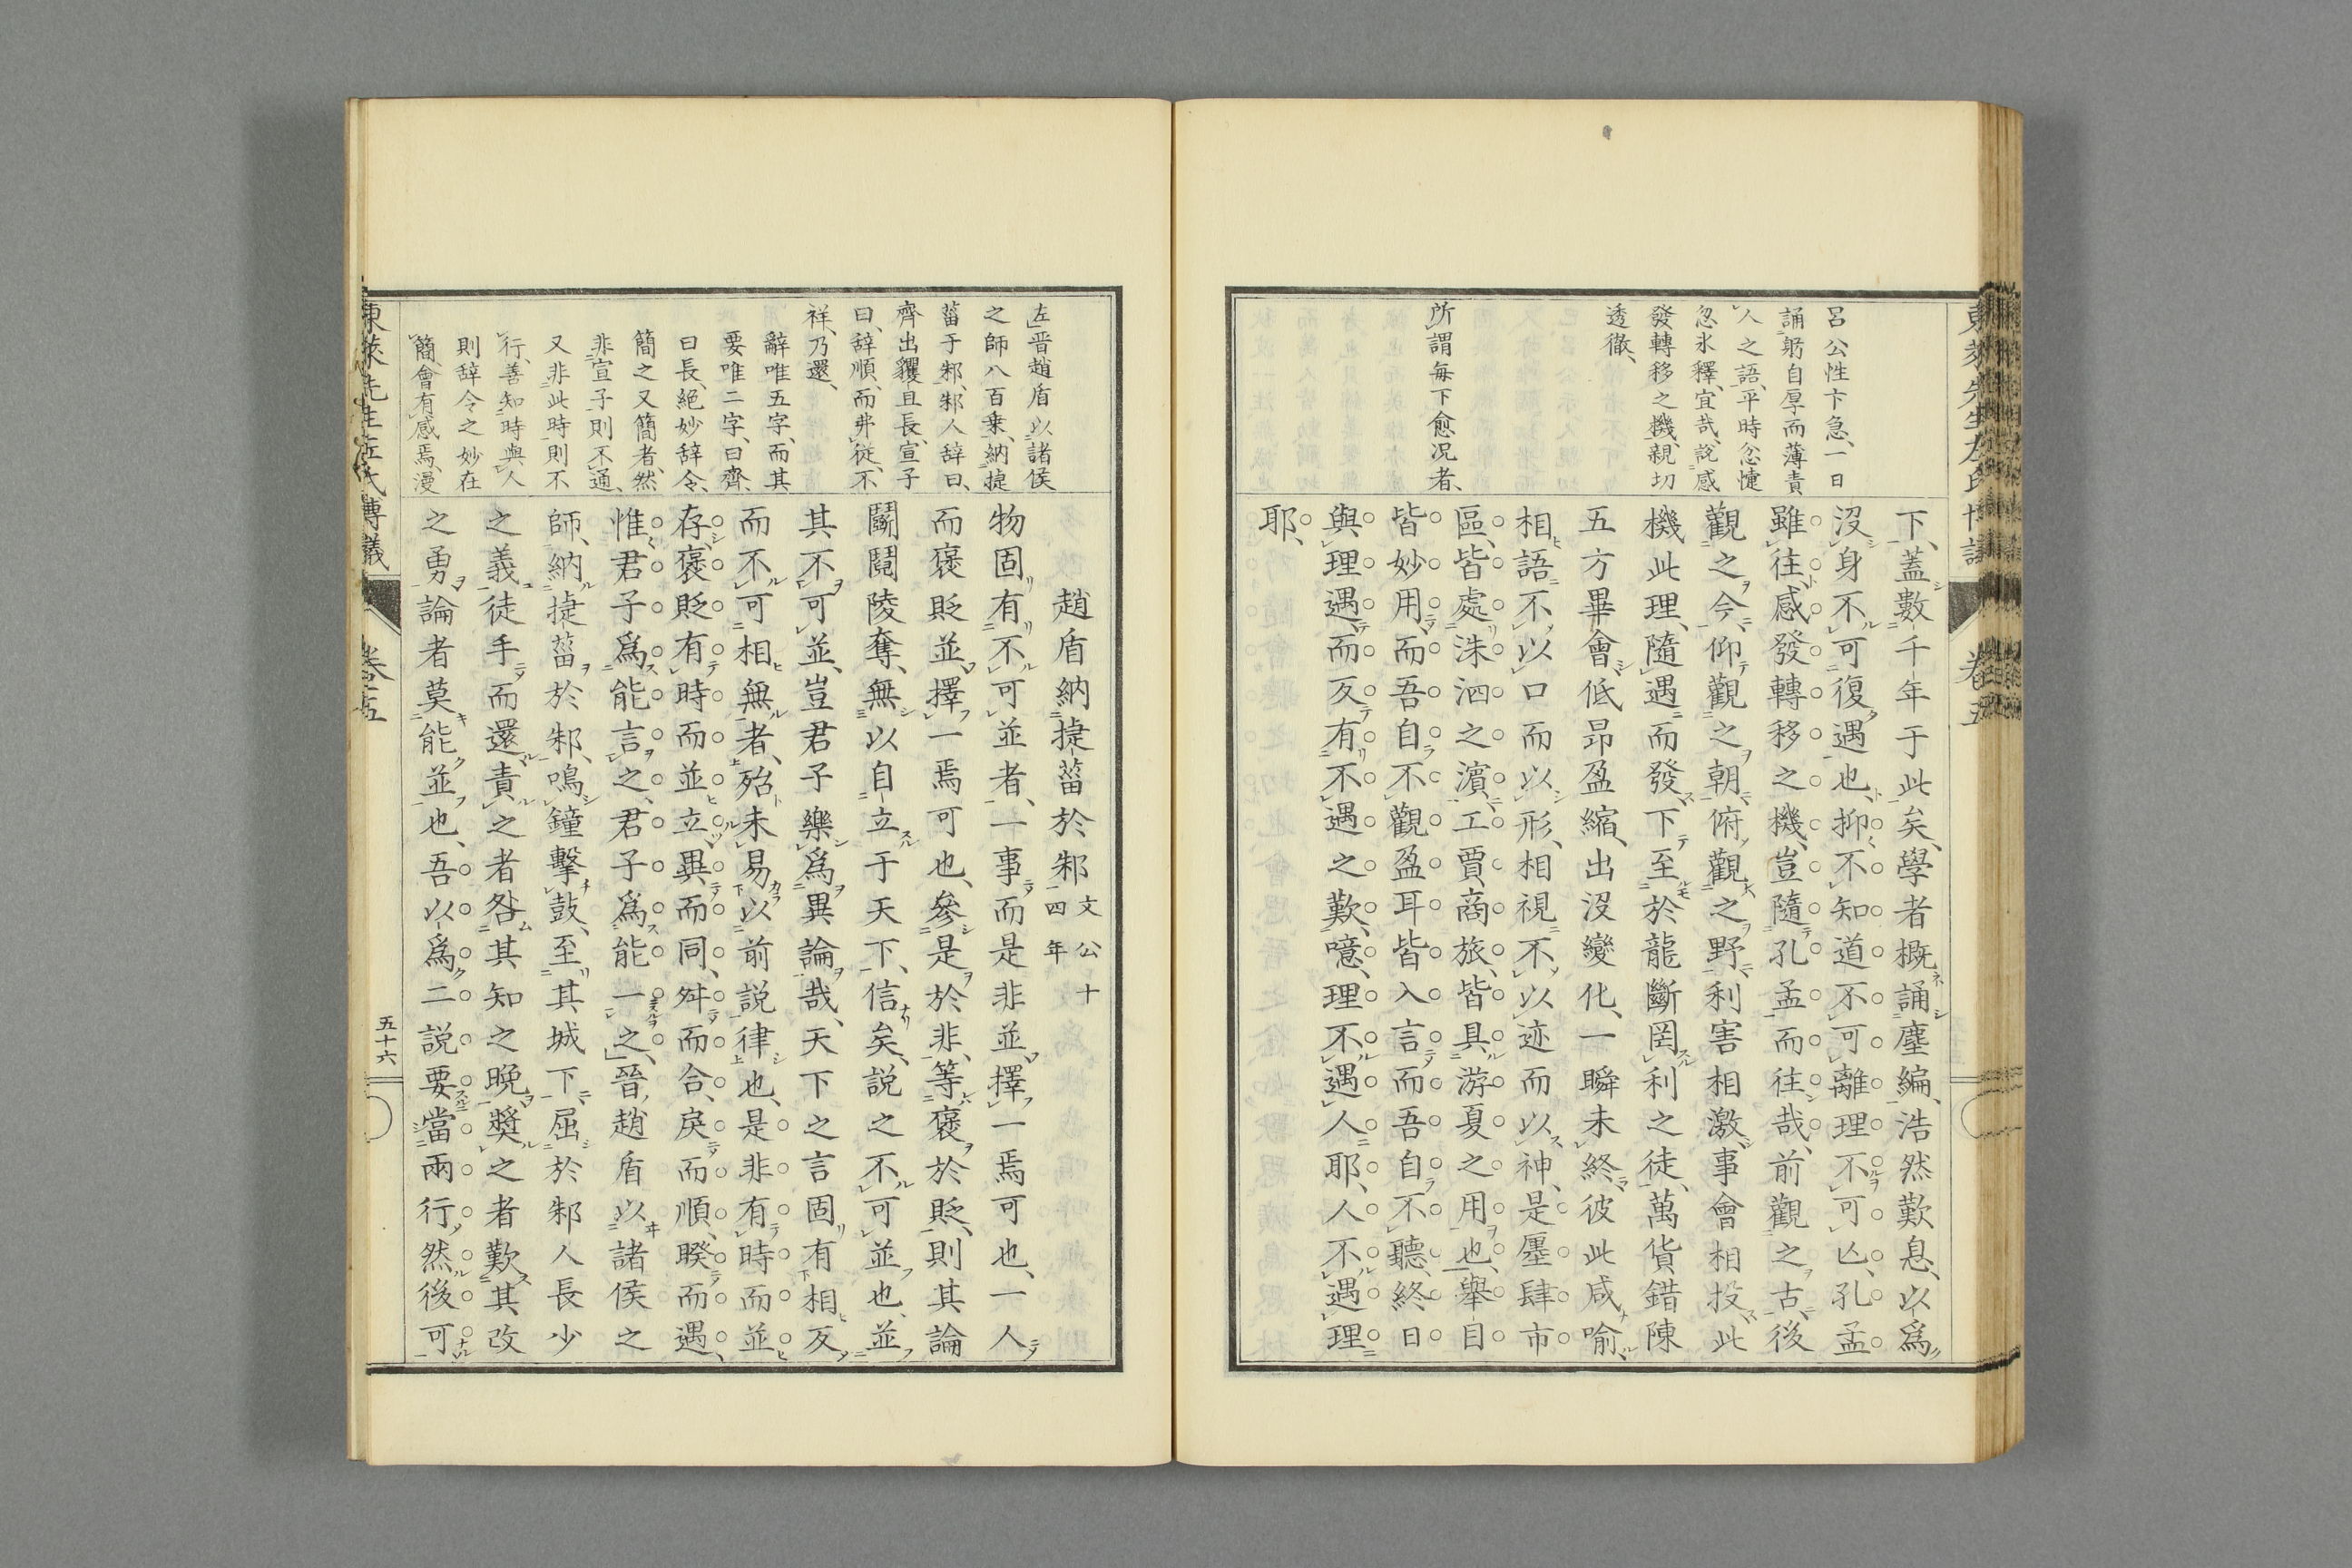 呂公性卞急、一日
誦躬自厚而薄責
人之語、平時忿懥
忽氷釋、宜哉説感
發轉移之機、親切
透徹、
所謂毎下愈况者、
下、蓋數千年于此矣、學者概誦塵編、浩然歎息、以爲
沒身不可復遇也、抑不知道不可離理不可亾、孔孟
雖往、感發轉移之機、豈隨孔孟而往哉、前觀之古、後
觀之今、仰觀之朝、俯觀之野、利害相激、事會相投、此
機此理、隨遇而發、下至於龍斷罔利之徒、萬貨錯陳
五方畢會、低昻盈縮、出沒變化、一瞬未終、彼此咸喻、
相語不以口而以形、相視不以迹而以神、是廛肆市
區、皆處洙泗之濵、工賈、商旅、皆具游夏之用也、擧目
皆妙用、而吾自不觀、盈耳皆入言、而吾自不聽、終日
與理遇、而反有不遇之歎、噫、理不遇人耶、人不遇理
耶、
東萊先生左氏博議
卷五
左晋趙盾以諸侯
之師八百乗、納捷
菑于邾、邾人辞曰、
齊出貜且長、宣子
曰、辞順、而弗従、不
祥、乃還、
辭唯五字、而其
要唯二字、曰齊、
曰長、絶妙辞令、
簡之又簡者、然
非宣子則不通、
又非此時則不
行、善知時與人
則辞令之妙在
簡、會有感焉、漫
趙盾納捷菑於邾 文公十四年
物固有不可並者、一事而是非並、擇一焉可也、一人
而褒貶並、擇一焉可也、參是於非、等褒於貶、則其論
鬭鬩陵奪、無以自立于天下、信矣、説之不可並也、並
其不可並、豈君子樂爲異論哉、天下之言固有相反
而不可相無者、殆未易以前説律也、是非有時而並
存、褒貶有時而並立、異而同、舛而合、戻而順、睽而遇、
惟君子爲能言之、君子爲能一之、晉趙盾以諸侯之
師、納捷菑於邾、鳴鐘擊鼓、至其城下、屈於邾人長少
之義、徒手而還、責之者咎其知之晩、奬之者歎其改
之勇、論者莫能並也、吾以爲二説要當兩行、然後可
東萊先生左氏博議
卷五
五十六